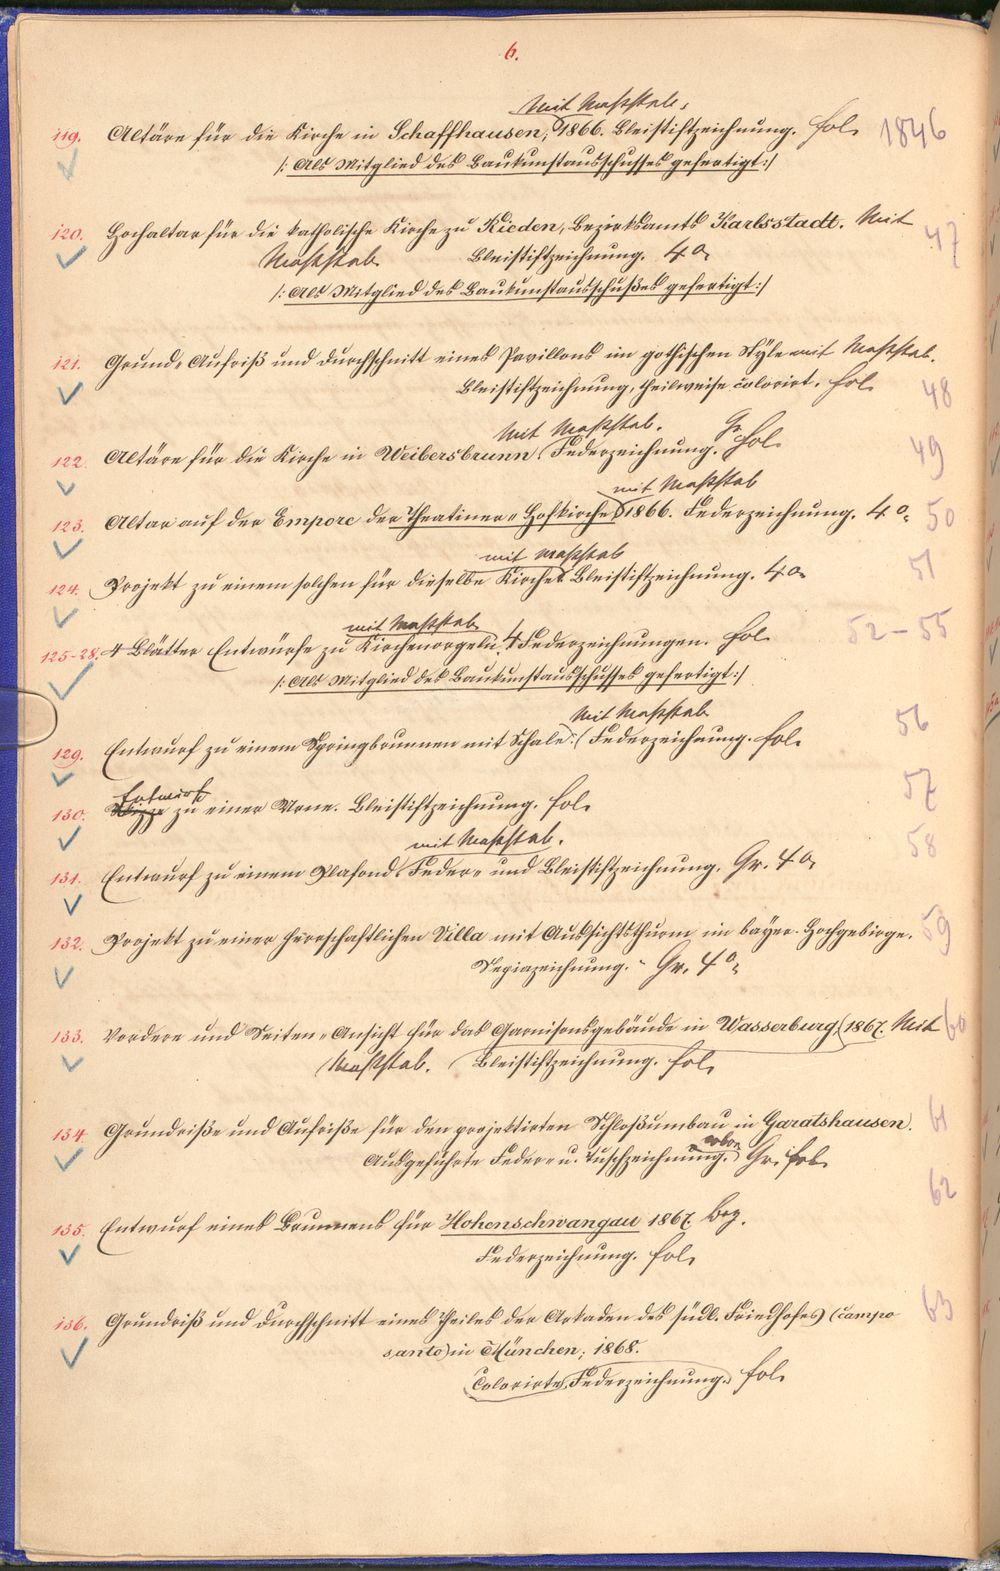 6.
Mit Maßstab.
119. Altäre für die Kirche in Schaffhausen, 1866. Bleistiftzeichnung. fol. 1846
/: Als Mitglied des Baukunstausschusses gefertigt :/
120. Hochaltar für die katholische Kirche zu Rieden, Bezirksamts Karlsstadt. Mit 47
Maßstab Bleistiftzeichnung. 4o.
/: Als Mitglied des Baukunstausschußes gefertigt :/
121. Grund- Aufriß und Durchschnitt eines Pavillons im gothischen Style mit Maßstab.
Bleistiftzeichnung, theilweise colorirt. fol. 48
Mit Maßstab. Gr.
122. Altäre für die Kirche in Weibersbrunn. Federzeichnung. fol. 49
mit Maßstab
123. Altar auf der Empore der Theatiner-Hofkirche 1866. Federzeichnung. 4o. 50
mit Maßstab
124. Projekt zu einem solchen für dieselbe Kirche. Bleistiftzeichnung. 4o. 51
mit Maßstab
125-28. 4 Blätter Entwürfe zu Kirchenorgeln. 4 Federzeichnungen. fol. 52-55
/: Als Mitglied des Baukunstausschusses gefertigt :/
Mit Maßstab
129. Entwurf zu einem Springbrunnen mit Schale. Federzeichnung. fol. 56
Entwurf
130. Skizze zu einer Urne. Bleistiftzeichnung. fol. 57
mit Maßstab.
131. Entwurf zu einem Plafond. Feder- und Bleistiftzeichnung. Gr. 4o. 58
132. Projekt zu einer herrschaftlichen Villa mit Aussichtsthurm im bayer. Hochgebirge. 59
Sepiazeichnung. Gr. 4o.
133. Vordere und Seiten-Ansicht für das Garnisonsgebäude in Wasserburg, 1867. Mit 60
Maßstab. Bleistiftzeichnung. fol.
134. Grundriße und Aufriße für den projektirten Schloßumbau in Garatshausen. 61
Ausgeführte Feder- u. Tuschzeichnung. Gr. fol.
62
135. Entwurf eines Brunnens für Hohenschwangau 1867. Bez.
Federzeichnung. fol.
136. Grundriß und Durchschnitt eines Theiles der Arkaden des südl. Friedhofes (campo 63
santo) in München; 1868.
Colorirte Federzeichnung. fol.